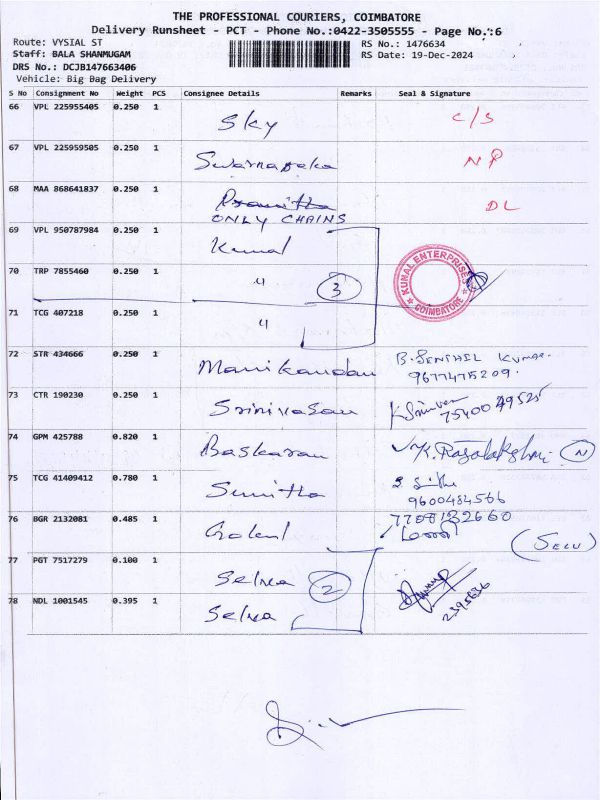 THE PROFESSIONAL COURIERS, COIMBATORE
Delivery Runsheet - PCT - Phone No.:0422-3505555 - Page No.:6
Route: VYSIAL ST RS No.: 1476634
Staff: BALA SHANMUGAM RS Date: 19-Dec-2024
DRS No.: DCJB147663406
Vehicle: Big Bag Delivery
S No Consignment No Weight PCS Consignee Details Remarks Seal & Signature
66 VPL 225955405 0.250 1 Sky C/S
67 VPL 225959505 0.250 1 NP
68 MAA 868641837 0.250 1 DL
ONLY CHAINS
69 VPL 950787984 0.250 1 Kunal
KUNAL ENTERPRISES
COIMBATORE
70 TRP 7855460 0.250 1 " 3
71 TCG 407218 0.250 1 "
72 STR 434666 0.250 1 Manikandan B. SENTHIL KUMAR.
9677475209.
73 CTR 190230 0.250 1 Srinivasan
74 GPM 425788 0.820 1 Baskaran K. Rajalakshmi N
75 TCG 41409412 0.780 1 Sunitha
9600484566
76 BGR 2132081 0.485 1 Gokul 7708132660
(SELU)
77 PGT 7517279 0.100 1 Selva 2
78 NDL 1001545 0.395 1 Selva 2395636